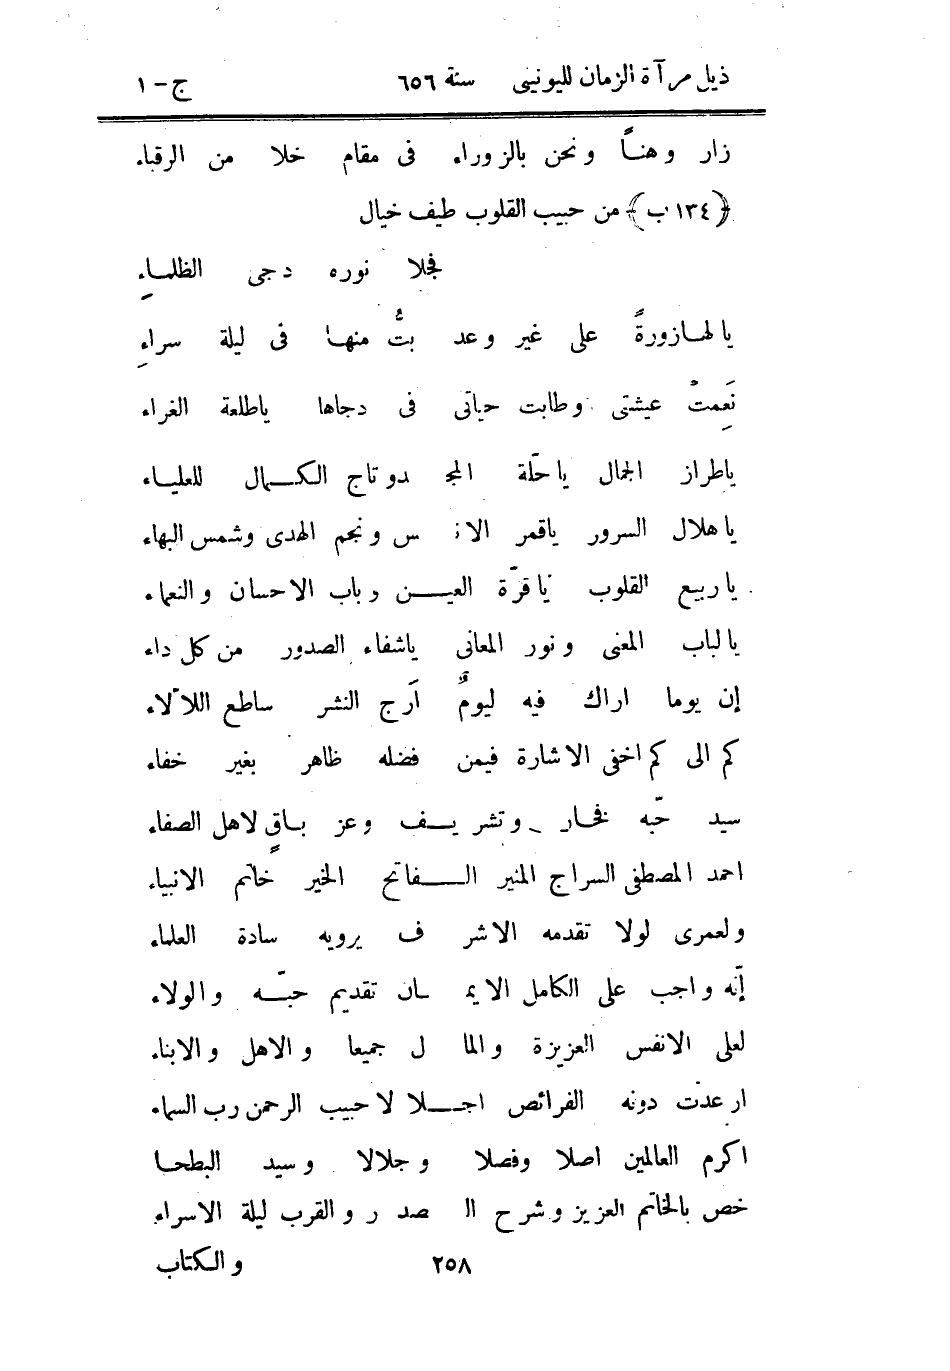 ذيل مرآة الزمان لليونينى سنة ٦٥٦ ج - ١
زار وهناً ونحن بالزوراء فى مقام خلا من الرقباء
﴿١٣٤ ب﴾ من حبيب القلوب طيف خيال
فجلا نوره دجى الظلماءِ
يالهـا زورةً على غير وعد بتُّ منهـا فى ليلة سراءِ
نَعِمتْ عيشتى وطابت حياتى فى دجاها ياطلعة الغراء
ياطراز الجمال ياحلّة المجـ ـد وتاج الكـمال للعليـاء
ياهلال السرور ياقمر الانـ ـس ونجم الهدى وشمس البهاء
ياربيع القلوب ياقرّة العيـــن وباب الاحسان والنعماء
يالباب المعنى ونور المعانى ياشفاء الصدور من كل داء
إن يوما اراك فيه ليومٌ أَرج النشر ساطع اللألاء
كم الى كم اخفى الاشارة فيمن فضله ظاهر بغير خفاء
سيد حبّه فخـار وتشريـف وعز بـاقٍ لاهل الصفاء
احمد المصطفى السراج المنير الـــفاتح الخير خاتم الانبياء
ولعمرى لولا تقدمه الاشر ف يرويه سادة العلماء
إنّه واجب على الكامل الايمـ ـان تقديم حبّـه والولاء
لعلى الانفس العزيزة والما ل جميعا والاهل والابناء
ارعدت دونه الفرائص اجـلا لا حبيب الرحمن رب السماء
اكرم العالمين اصلا وفصلا وجلالا وسيد البطحـا
خص بالخاتم العزيز وشرح الـ ـصدر والقرب ليلة الاسراء
٢٥٨ والكتاب